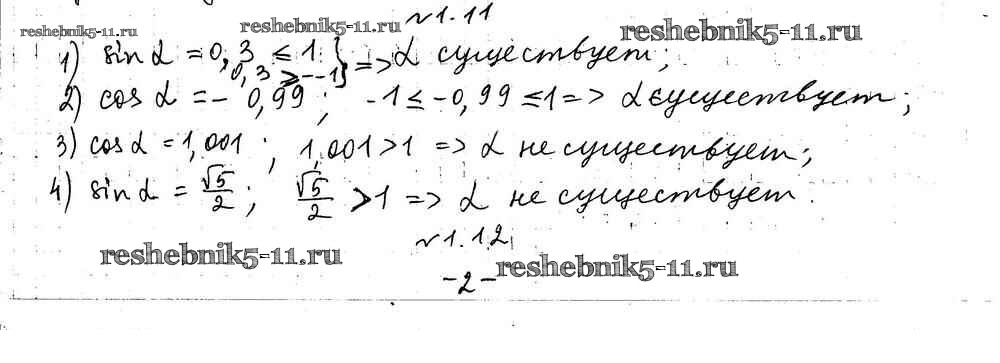 №1.11
reshebnik5-11.ru reshebnik5-11.ru reshebnik5-11.ru
1) sin α = 0,3 ≤ 1 } => α существует;
0,3 ≥ -1
2) cos α = - 0,99; -1 ≤ -0,99 ≤ 1 => α существует;
3) cos α = 1,001; 1,001 > 1 => α не существует;
4) sin α = √5/2; √5/2 > 1 => α не существует.
№1.12
reshebnik5-11.ru reshebnik5-11.ru
-2-